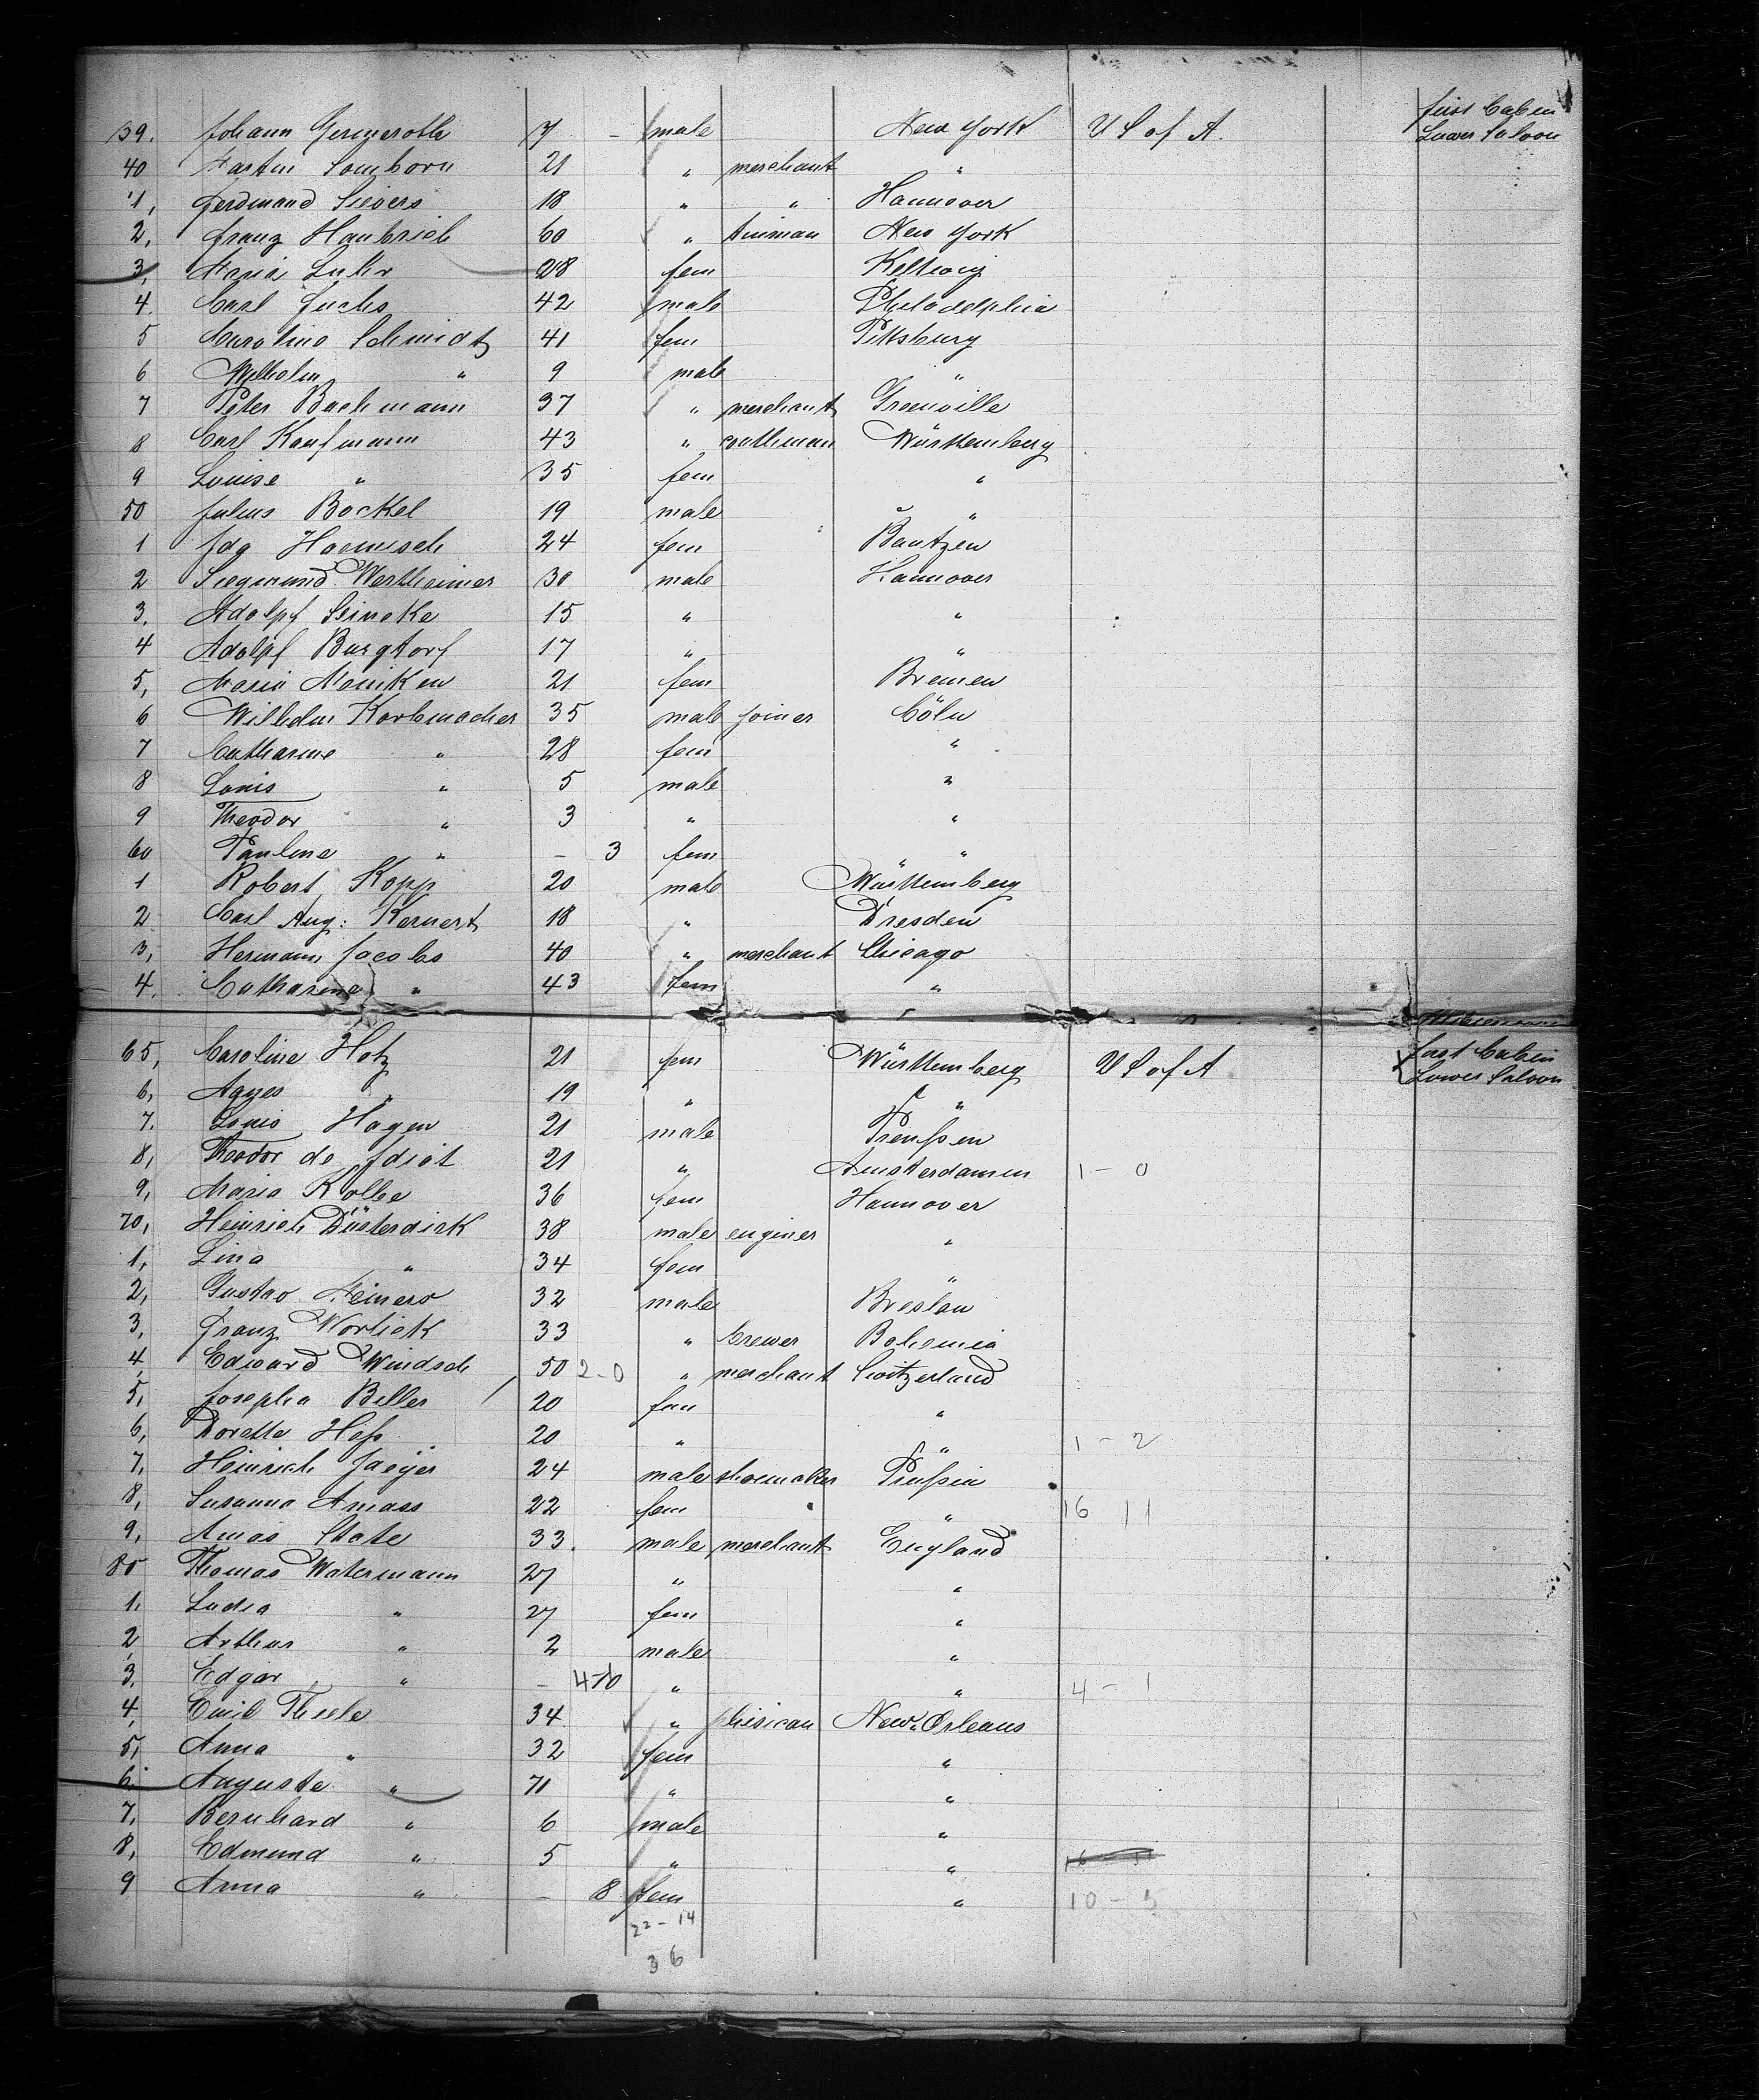 first Cabin
39. Johann Germeroth 7 - male New York U S of A. Lower Saloon
40 Martin Somborn 21 " merchant "
'1, Ferdinand Sievers 18 " " Hannover
2, Franz Haubrich 60 " tinman New York
3, Maria Luhr 28 fem Kettwig
4. Carl Fuchs 42 male Philadelphia
5 Caroline Schmidt 41 fem Pittsburg
6 Wilhelm " 9 male "
7 Peter Bachmann 37 " merchant Greenville
8 Carl Kaufmann 43 " Württemberg
9 Louise " 35 fem "
50 Julius Böckel 19 male "
1 Ida Haenisch 24 fem Bautzen
2 Siegmund Wertheimer 30 male Hannover
3. Adolpf Heineke 15 " "
4 Adolpf Burgtorf 17 " "
5, Maria Moniken 21 fem Bremen
6 Wilhelm Korbmacher 35 male joiner Cöln
7 Catharine " 28 fem "
8 Louis " 5 male "
9 Theodor " 3 " "
60 Pauline " - 3 fem "
1 Robert Kopp 20 male Württemberg
2 Carl Aug: Kernert 18 " Dresden
3, Hermann Jacobs 40 " merchant Chicago
4. Catharine " 43 fem "
65, Caroline Hotz 21 fem Württemberg U S of A first Cabin
Lower Saloon
6, Agnes " 19 " "
7. Louis Hagen 21 male Preußen
8, Theodor de Idiot 21 " Amsterdamm 1 - 0
9, Maria Kolbe 36 fem Hannover
70, Heinrich Düsterdirk 38 male enginer "
1, Lina " 34 fem "
2, Gustav Meiners 32 male Breslau
3, Franz Worlick 33 " brewer Bohemia
4, Edward Windsch 50 2-0 " merchant Switzerland
5, Josepha Beller 20 fem "
6, Dorette Heß 20 " " 1 - 2
7, Heinrich Jaeger 24 male shoemaker Prußia
8, Susanna Amass 22 fem " 16 11
9, Amos State 33. male merchant England
80 Thomas Watermann 27 " "
1. Ludia " 27 fem "
2, Arthur " 2 male "
3. Edgar " - " " 4 - 1
4, Emil Thiele 34 " phisican New Orleans
5, Anna " 32 fem "
6. Auguste " 71 " "
7, Bernhard " 6 male "
8, Edmund " 5 " "
9 Anna " - 8 fem " 10 - 5
22 - 14
36